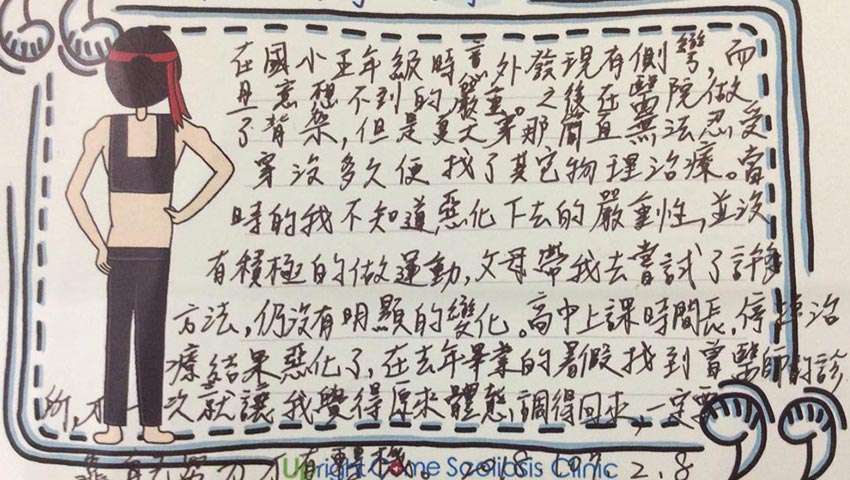 在國小五年級時意外發現有側彎,而
且意想不到的嚴重。之後在醫院做
了背架,但是夏天穿那簡直無法忍受
穿沒多久便找了其它物理治療。當
時的我不知道惡化下去的嚴重性,並沒
有積極的做運動,父母帶我去嘗試了許多
方法,仍沒有明顯的變化。高中上課時間長,停 治
療結果惡化了,在去年畢業的暑假找到曾醫師的診
所, 一次就讓我覺得原來體態調得回來,一定要
靠自己努力才有轉機。 2018 2.8
Upright Come Scoliosis Clinic